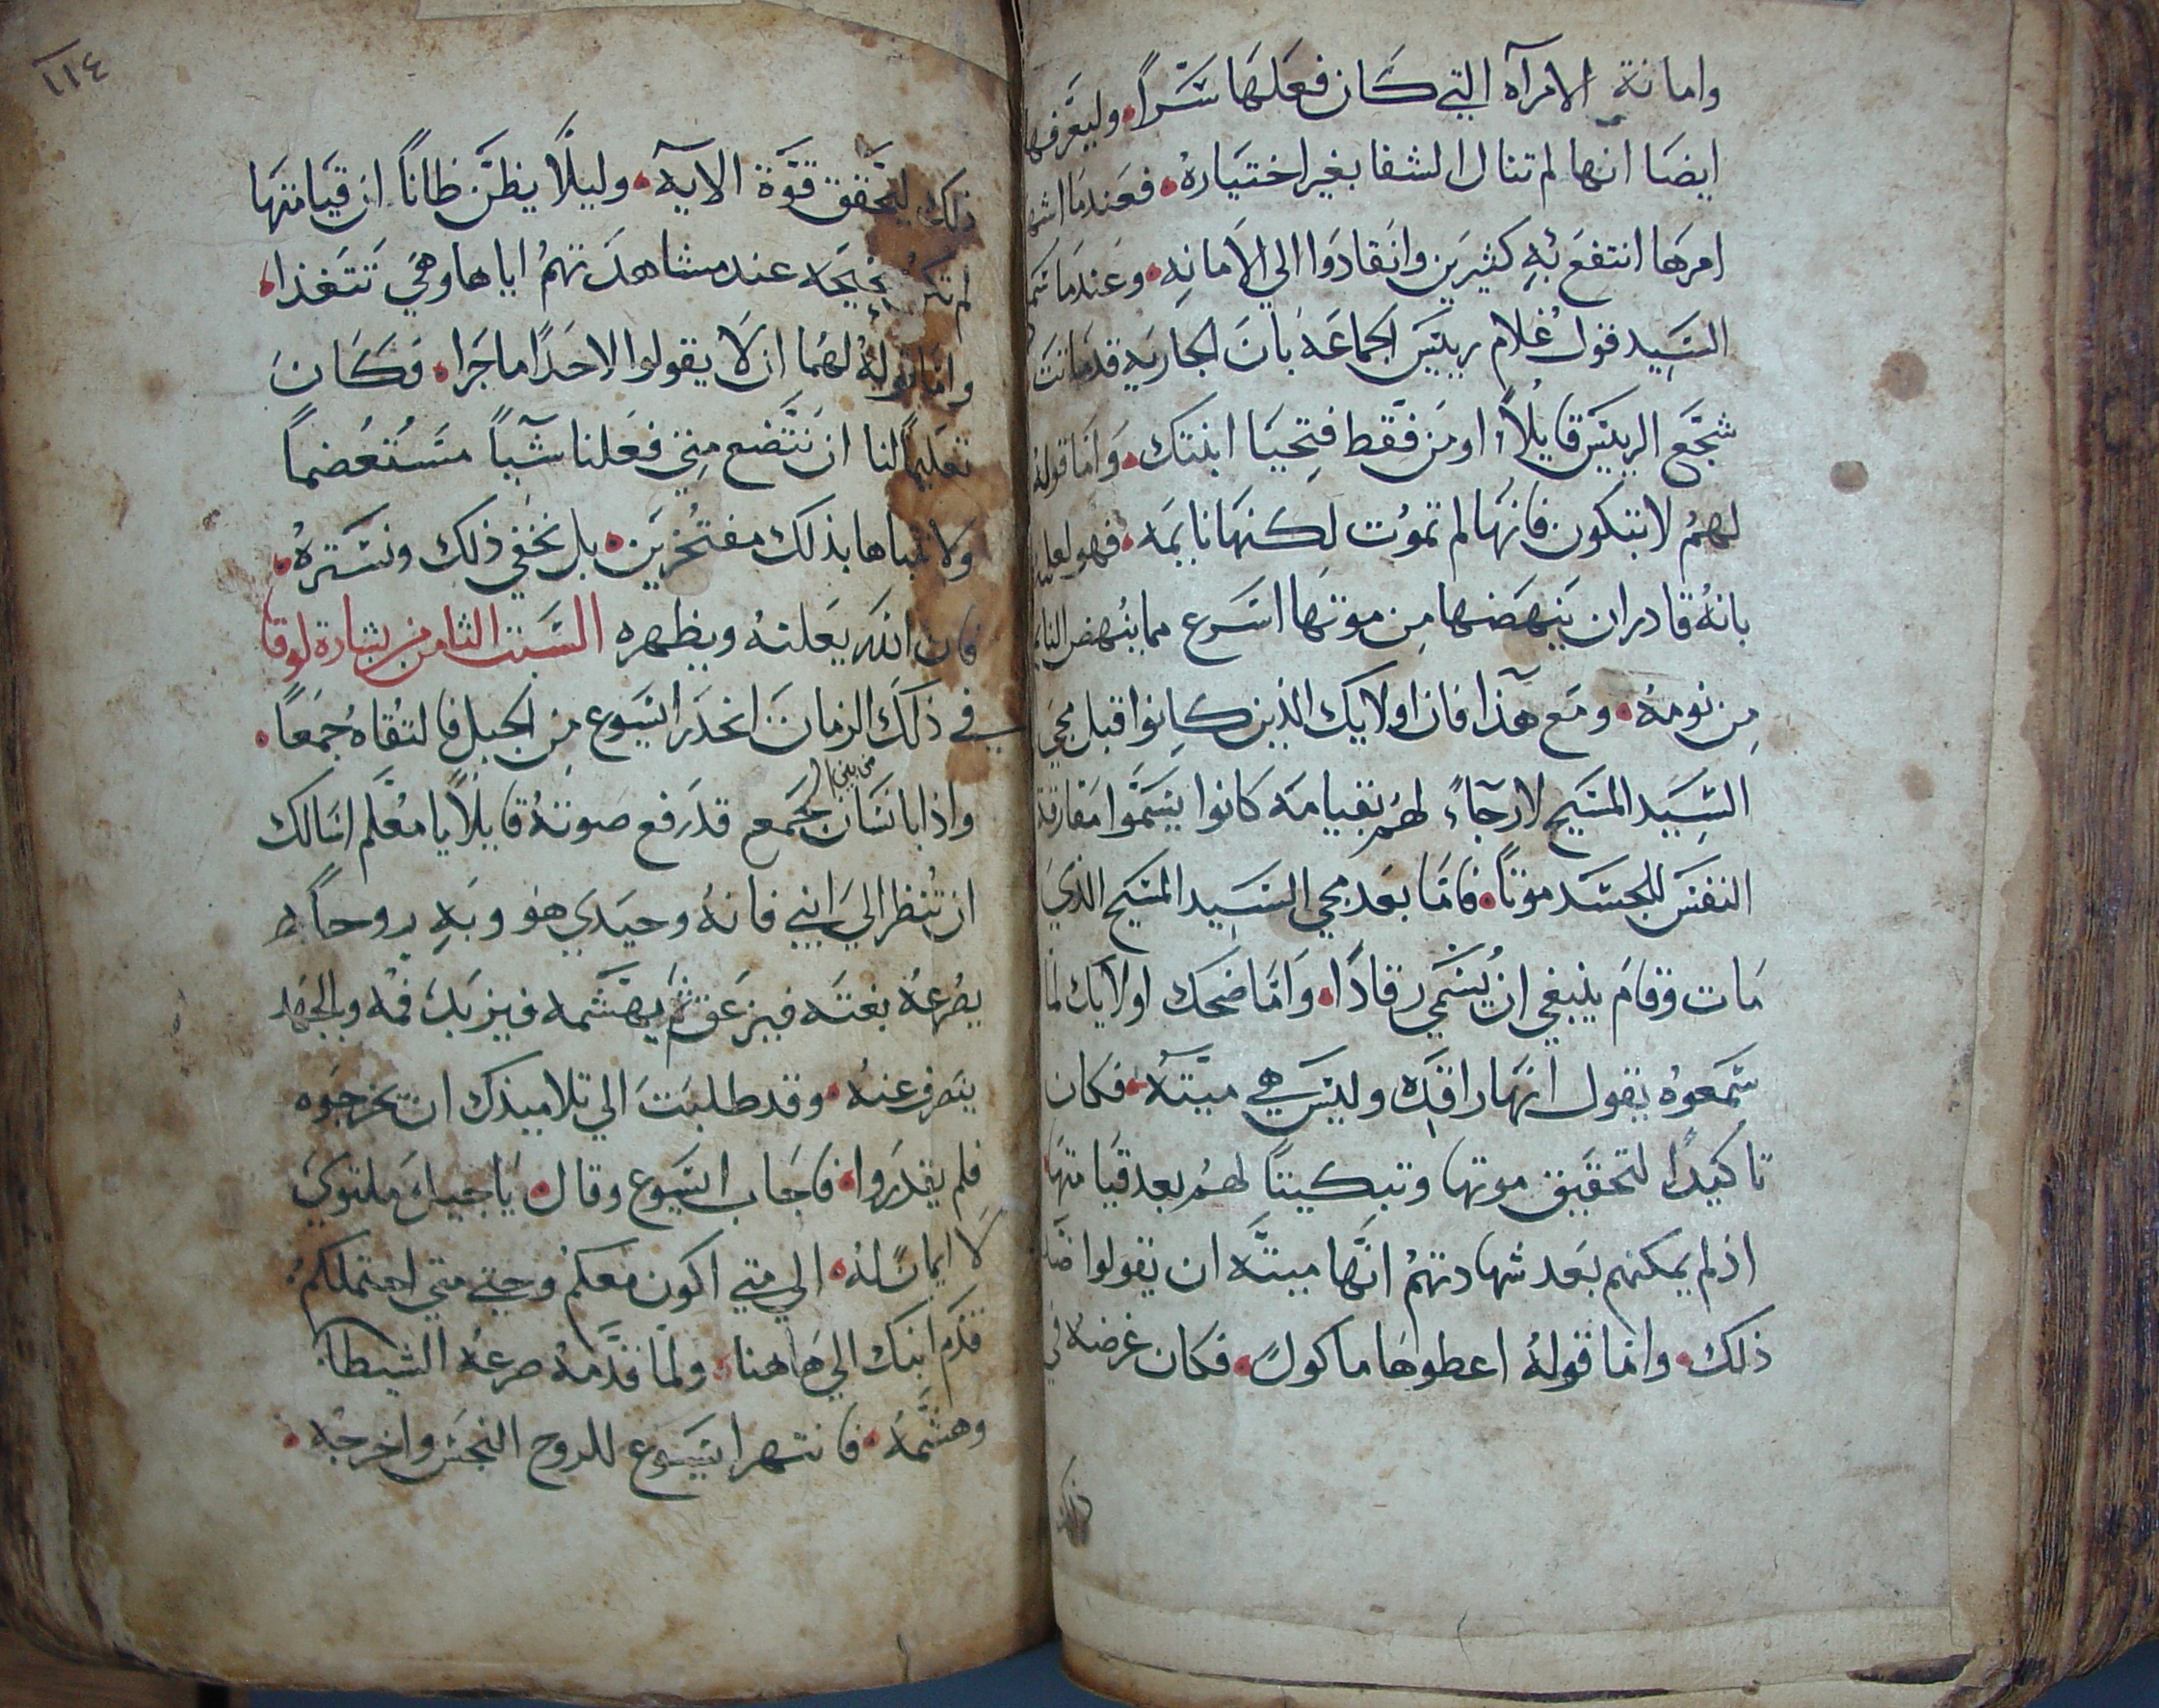 وامانة الامرآه التي كان فعلها سرا وليعرفها
ايضا انها لم تنال الشفا بغير اختياره فعندما اشهر
امرها انتفع به كثيرين وانقادوا الي الامانه وعندما
السيد قول غلام رييس الجماعه بان الجاريه قد ماتت
شجع الرييس قايلاً اومن فقط فتحيا ابنتك واما قوله
لهم لا تبكون فانها لم تموت لكنها نايمه فهو
بانه قادر ان ينهضها من موتها اسرع مما ينهض النايم
من نومه ومع هذا فان اولايك الذين كانوا قبل مجي
السيد المسيح لا رجاءً لهم بقيامه كانوا يسموا مفارقة
النفس للجسد موتاً فاما بعد مجي السيد المسيح الذي
مات وقام ينبغي ان يسمي رقادا واما ضحك اولايك لما
سمعوه يقول انها راقده وليس هي ميته فكان
تاكيدا لتحقيق موتها وتبكيتاً لهم بعد قيامتها
اذ لم يمكنهم بعد شهادتهم انها ميته ان يقولوا ضد
ذلك واما قوله اعطوها ماكول فكان غرضه في
ذلك
١١٤
ذلك ليحقق قوة الايه وليلا يظن ظاناً ان قيامتها
لم تكن صحيحه عند مشاهدتهم اياها وهي تتغذا
واما قوله لهما ان لا يقولوا لاحدا ما جرا فكان
تعليماً لنا ان نتضع متي فعلنا شياً مستعضماً
ولا نتباها بذلك مفتخرين بل نخفي ذلك ونستره
فان الله يعلنه ويظهره السبت الثامن بشارة لوقا
في ذلك الزمان انحدر ايسوع من الجبل فالتقاه جمعاً
من بين ال
واذا بانسان جمع قد رفع صوته قايلاً يا معلم اسالك
ان تنظر الي ابني فانه وحيدي هو وبه روحاً
يصرعه بغته فيزعق ثم يهشمه فيزبد فمه وبالجهد
ينصرف عنه وقد طلبت الي تلاميذك ان يخرجوه
فلم يقدروا فاجاب ايسوع وقال يا جيل ملتوي
لا ايمان له الي متي اكون معكم وحتي متي احتملكم
قدم ابنك الي هاهنا ولما قدمه صرعه الشيطان
وهشمه فانتهر ايسوع للروح النجس واخرجه